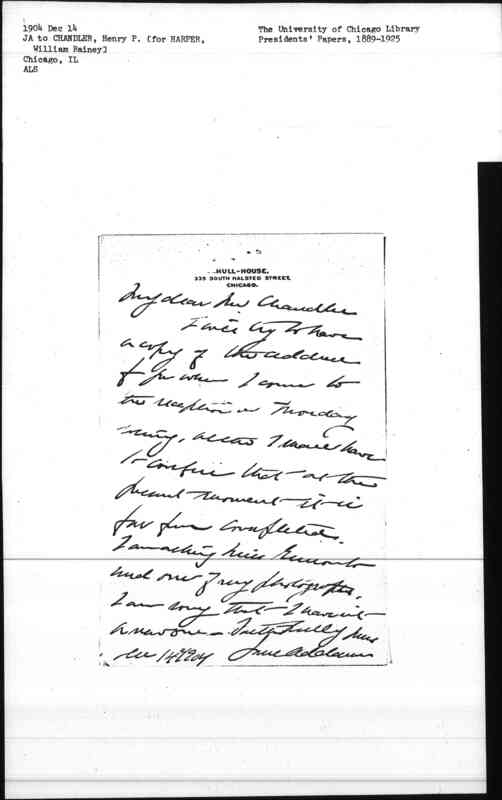 1904 Dec 14
JA to CHANDLER, Henry P. [for HARPER,
William Rainey]
Chicago, IL
ALS
The University of Chicago Library
Presidents' Papers, 1889-1925
HULL-HOUSE,
335 SOUTH HALSTED STREET,
CHICAGO.
My dear Mr Chandler
I will try to have
a copy of the address
for you when I come to
the reception on Monday
evening, altho I will have
to confess that at the
present moment it is
far from completed.
I am asking Miss
send one of my photographs,
I am sorry that I haven't
a new one - Faithfully yours
Dec 14" 1904 Jane Addams